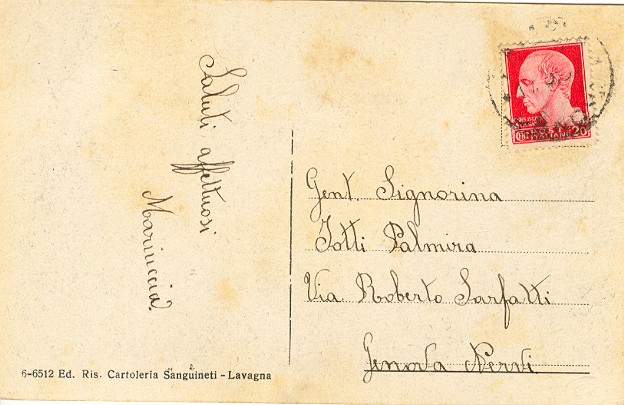 Saluti affettuosi
Mariuccia
Gent. Signorina
Totti Palmira
Via Roberto Sarfatti
Genova Nervi
6-6512 Ed. Ris. Cartoleria Sanguineti - Lavagna
20